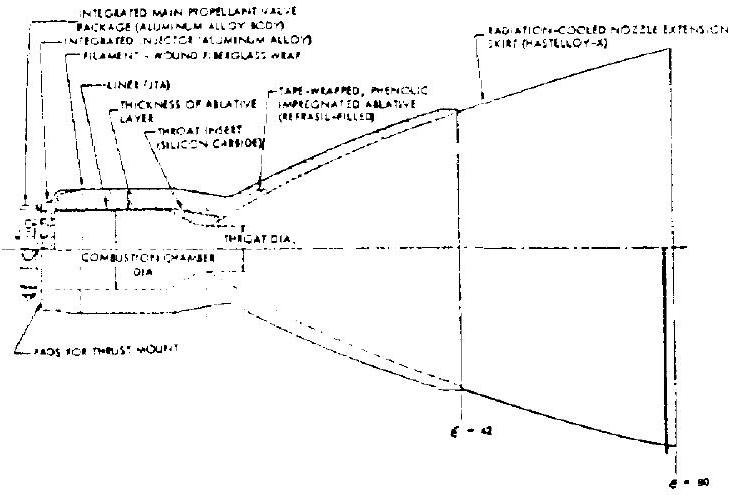 INTEGRATED MAIN PROPELLANT VALVE
PACKAGE (ALUMINUM ALLOY BODY)
INTEGRATED INJECTOR (ALUMINUM ALLOY)
FILAMENT - WOUND FIBERGLASS WRAP
LINER (JTA)
THICKNESS OF ABLATIVE
LAYER
THROAT INSERT
(SILICON CARBIDE)
TAPE-WRAPPED, PHENOLIC
IMPREGNATED ABLATIVE
(REFRASIL-FILLED)
RADIATION-COOLED NOZZLE EXTENSION
SKIRT (HASTELLOY-X)
THROAT DIA.
COMBUSTION CHAMBER
DIA
PADS FOR THRUST MOUNT
ε = 42
ε = 80